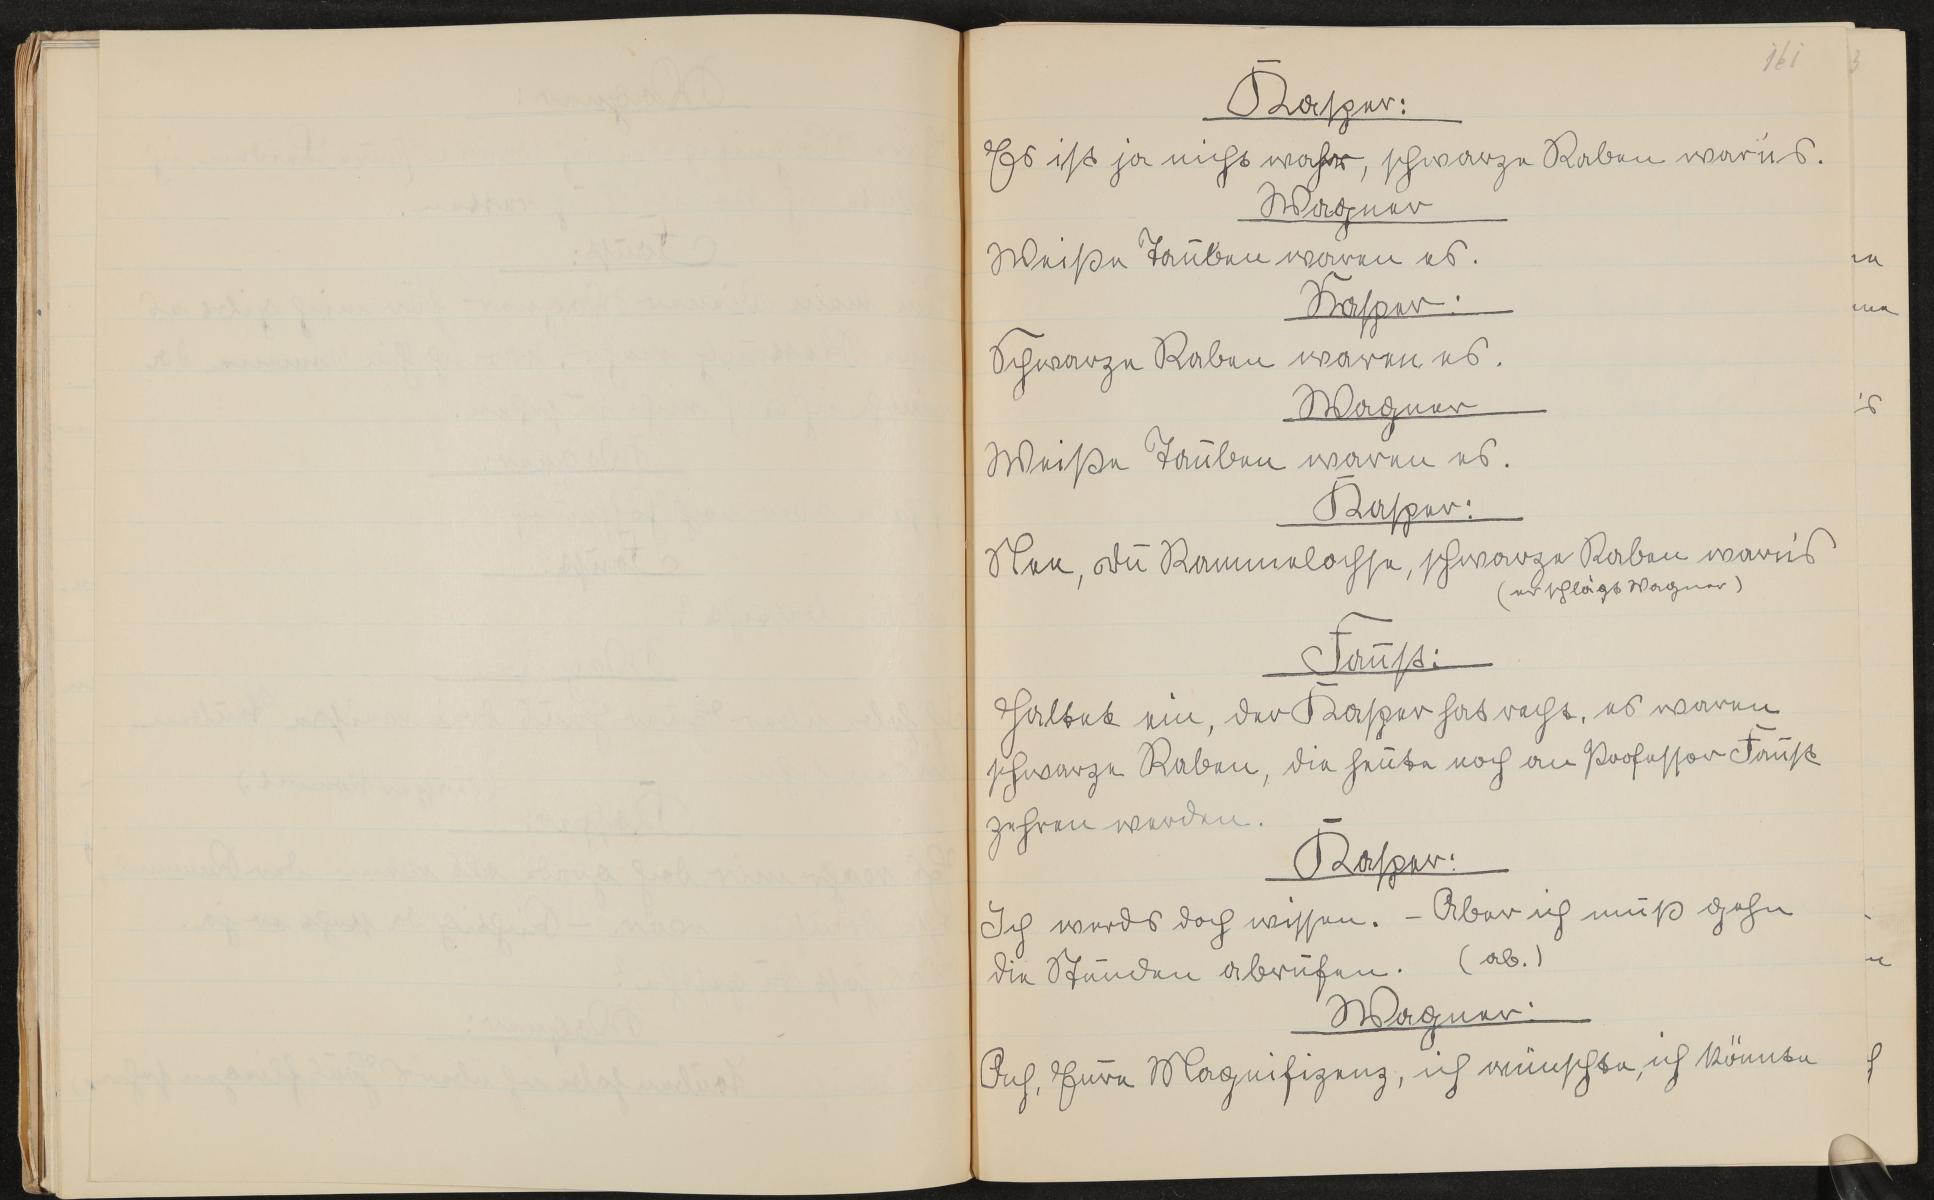 161
Kasper:
Es ist ja nicht wahr, schwarze Raben waru's.
Wagner
Weiße Tauben waren es.
Kasper:
Schwarze Raben waren es.
Wagner
Weiße Tauben waren es.
Kasper:
Nee, du Rammelochse, schwarze Raben waru's
(er schlägt Wagner)
Faust:
Haltet ein, der Kasper hat recht, es waren
schwarze Raben, die heute noch an Professor Faust
zehren werden.
Kasper:
Ich werds doch wissen. – Aber ich muß gehn
die Stunden abrufen. (ab.)
Wagner:
Ach, Eure Magnifizenz, ich wünschte, ich könnte